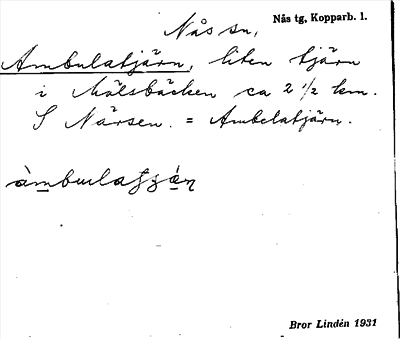 Nås sn,
Nås tg, Kopparb. l.
Ambulatjärn, liten tjärn
i Mälsbäcken ca 2 1/2 km.
S Närsen. = Ambelatjärn.
Bror Lindén 1931